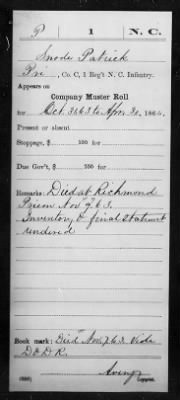 P | 1 | N. C.
Snode Patrick
Pri, Co. C, 1 Reg't N. C. Infantry.
Appears on
Company Muster Roll
for Oct. 31 63 to Apr. 30, 1864.
Present or absent
Stoppage, $ 100 for
Due Gov't, $ 100 for
Remarks: Died at Richmond
Prison Nov 7 63.
Inventory & final statement
rendered
Book mark: Died Nov. 7, 63. Vide
D & D R.
(858) Copyist.